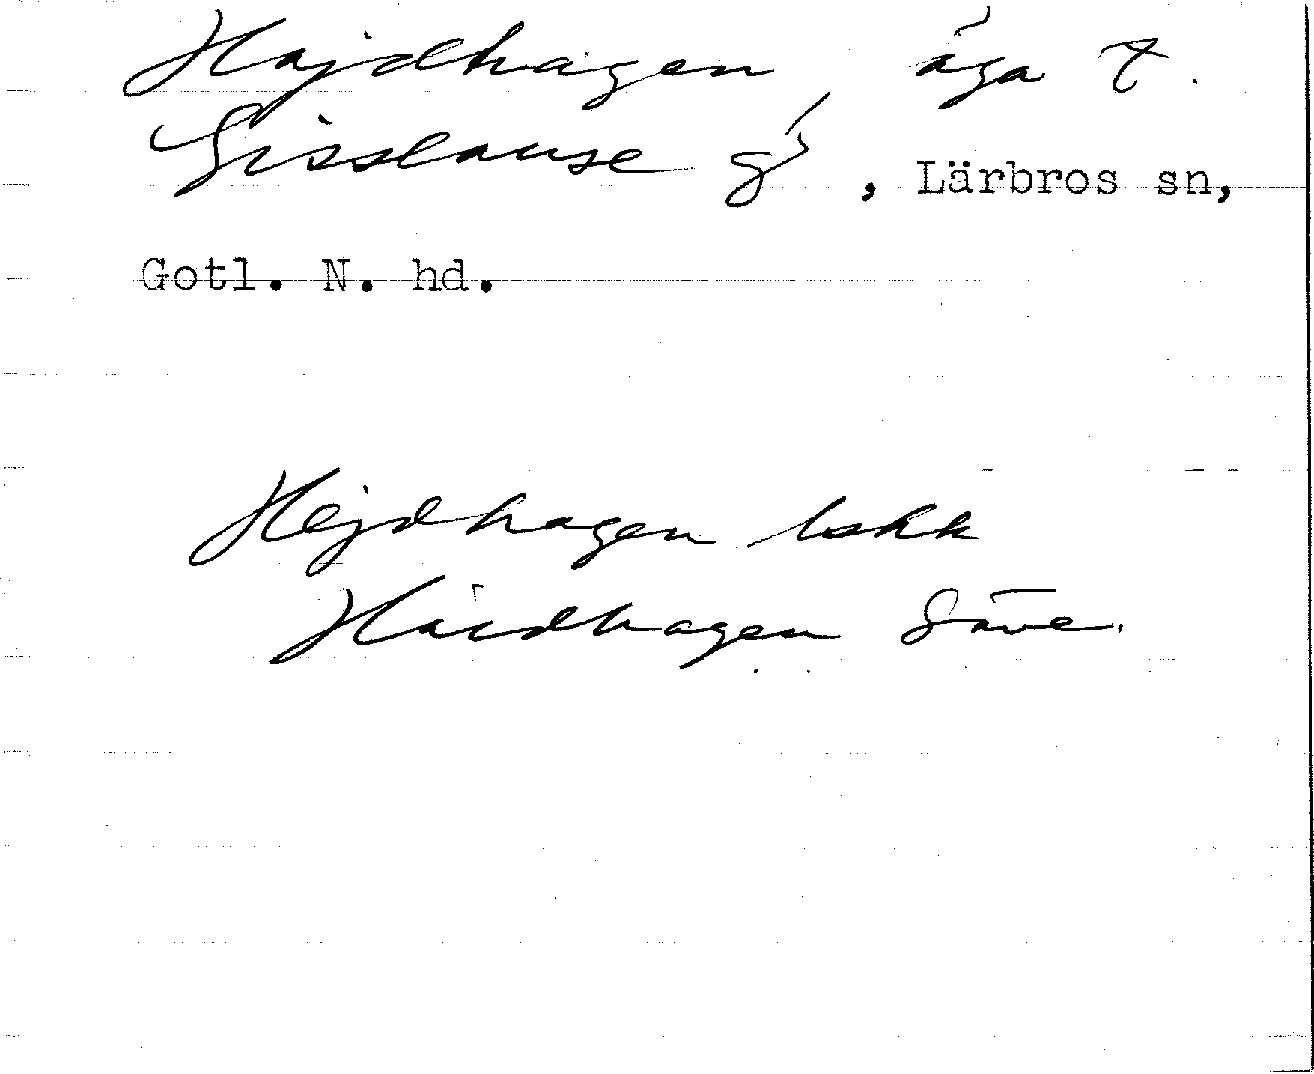 Hajdhagen, äga t.
Gisslause gd, Lärbros sn,
Gotl. N. hd.
Hejdhagen lskk
Haidhagen Säve.